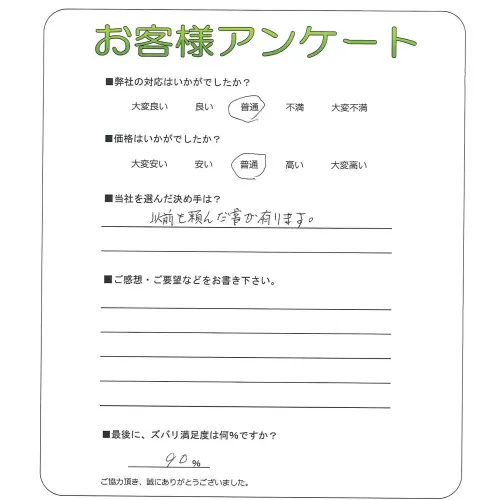 お客様アンケート
■弊社の対応はいかがでしたか？
大変良い 良い 普通 不満 大変不満
■価格はいかがでしたか？
大変安い 安い 普通 高い 大変高い
■当社を選んだ決め手は？
以前も頼んだ事が有ります。
■ご感想・ご要望などをお書き下さい。
■最後に、ズバリ満足度は何%ですか？
90%
ご協力頂き、誠にありがとうございました。